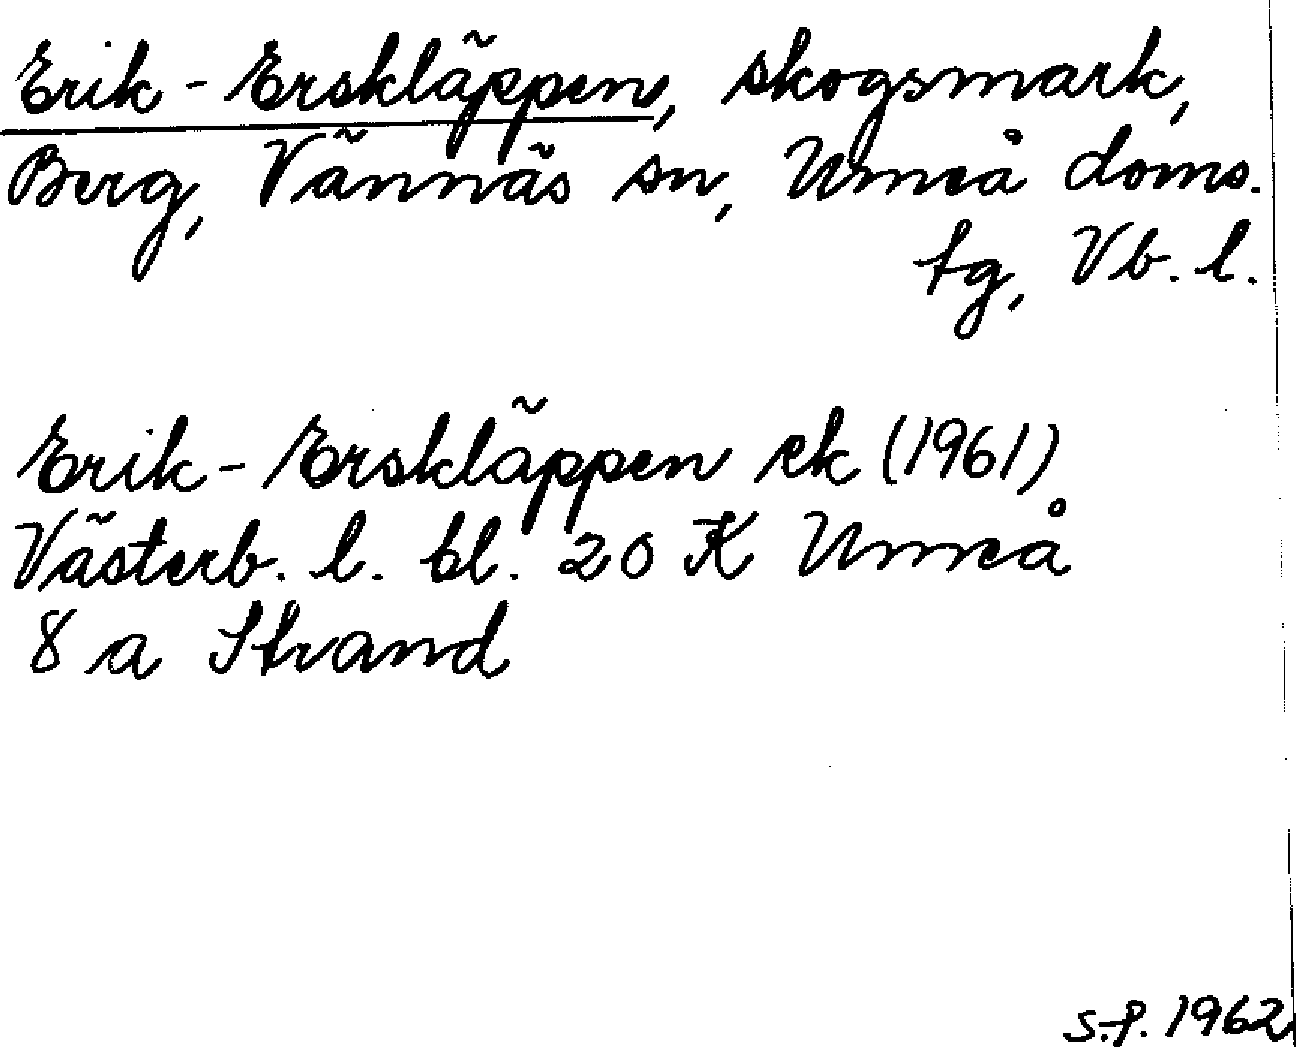 Erik-Erskläppen, skogsmark,
Berg, Vännäs sn, Umeå doms.
tg, Vb. l.
Erik-Erskläppen ek (1961)
Västerb. l. bl. 20 K Umeå
8 a Strand
S.F. 1962